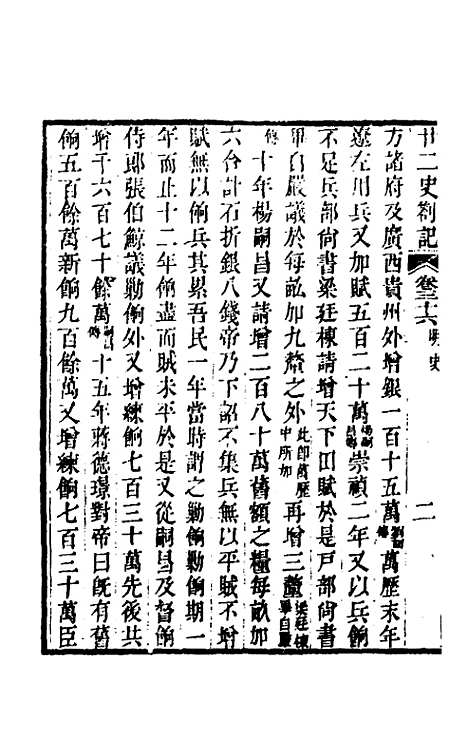 廿二史劄記 卷三十六 明史 二
方諸府及廣西貴州外增銀一百十五萬萬歷末年
遼左用兵又加賦五百二十萬楊嗣昌傳崇禎二年又以兵餉
不足兵部尚書梁廷棟請增天下田賦於是戶部尚書
畢自嚴議於每畝加九釐之外此即萬歷中所加再增三釐梁廷棟畢自嚴
傳十年楊嗣昌又請增二百八十萬舊額之糧每畝加
六合計石折銀八錢帝乃下詔不集兵無以平賊不增
賦無以餉兵其累吾民一年當時謂之勦餉勦餉期一
年而止十二年餉盡而賊未平於是又從嗣昌及督餉
侍郎張伯鯨議勦餉外又增練餉七百三十萬先後共
增千六百七十餘萬嗣昌傳十五年蔣德璟對帝曰旣有舊
餉五百餘萬新餉九百餘萬又增練餉七百三十萬臣